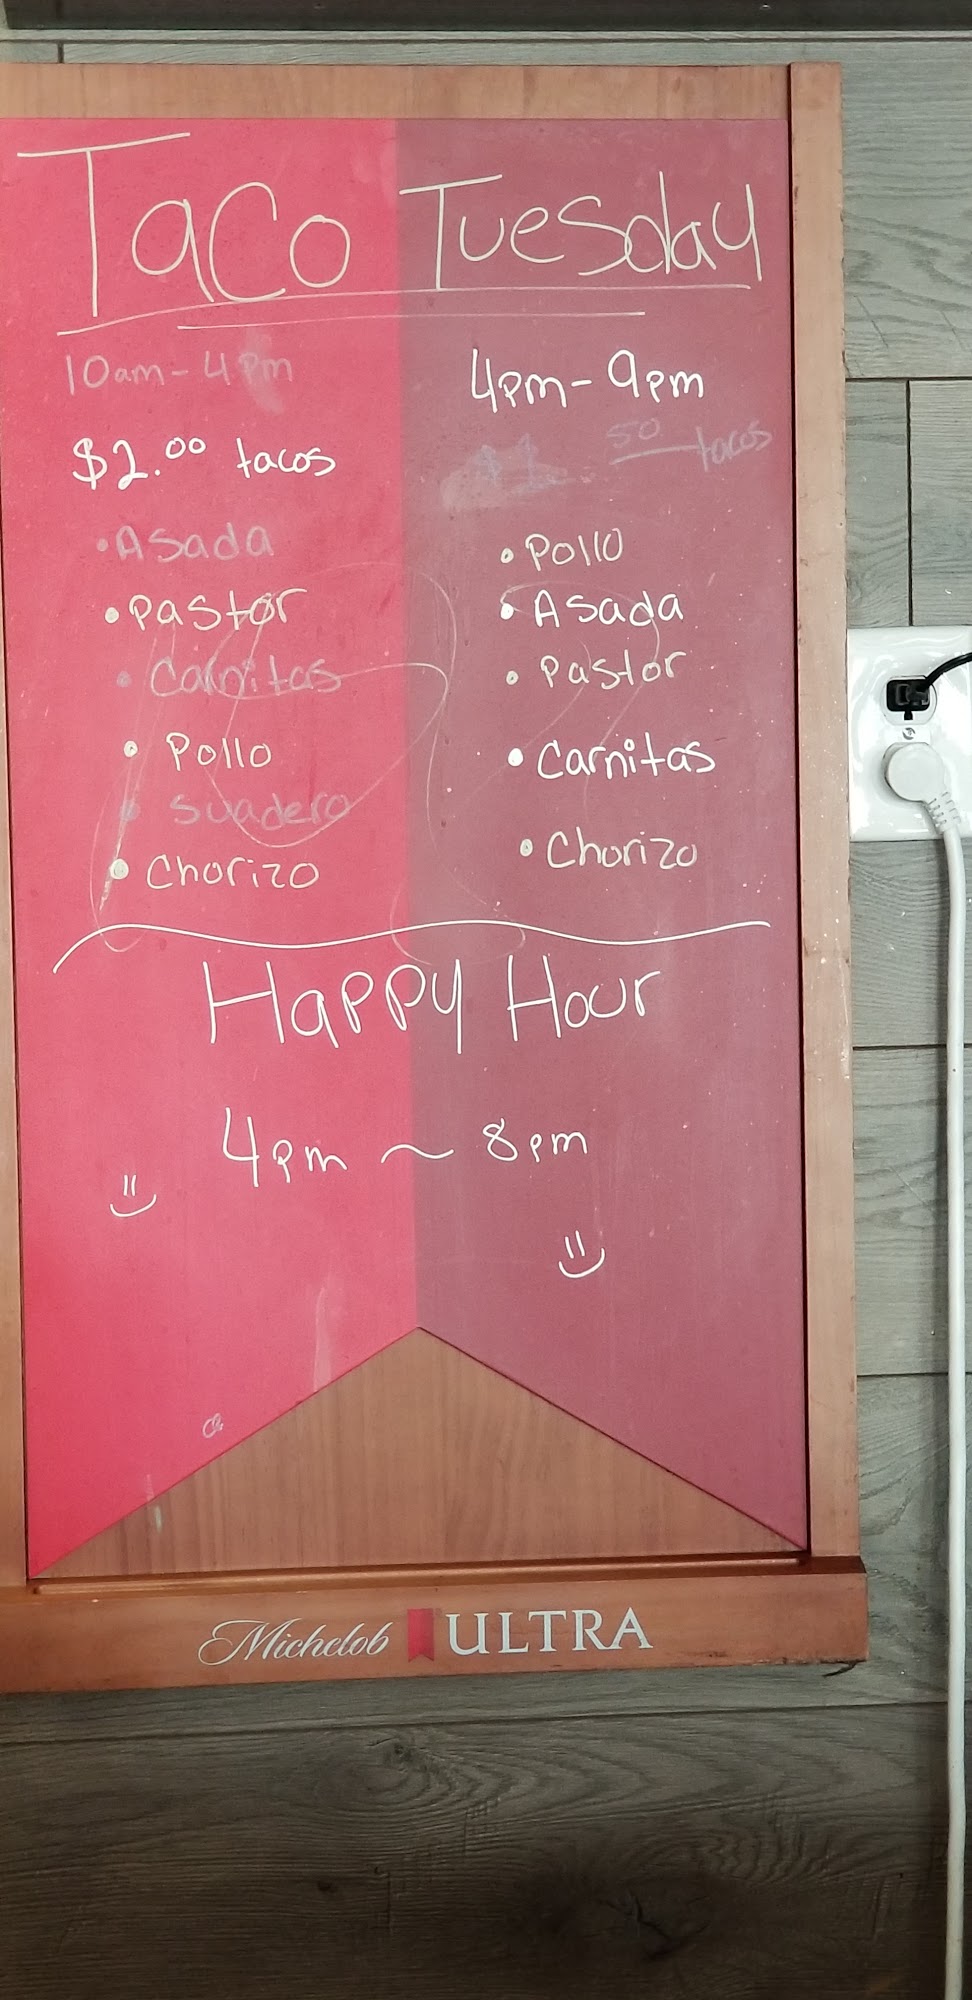 Taco Tuesday
10am - 4pm
$2.00 tacos
• Asada
• Pastor
• Carnitas
• Pollo
• Suadero
• Chorizo
4pm - 9pm
50 tacos
• Pollo
• Asada
• Pastor
• Carnitas
• Chorizo
Happy Hour
4pm ~ 8pm
Michelob ULTRA